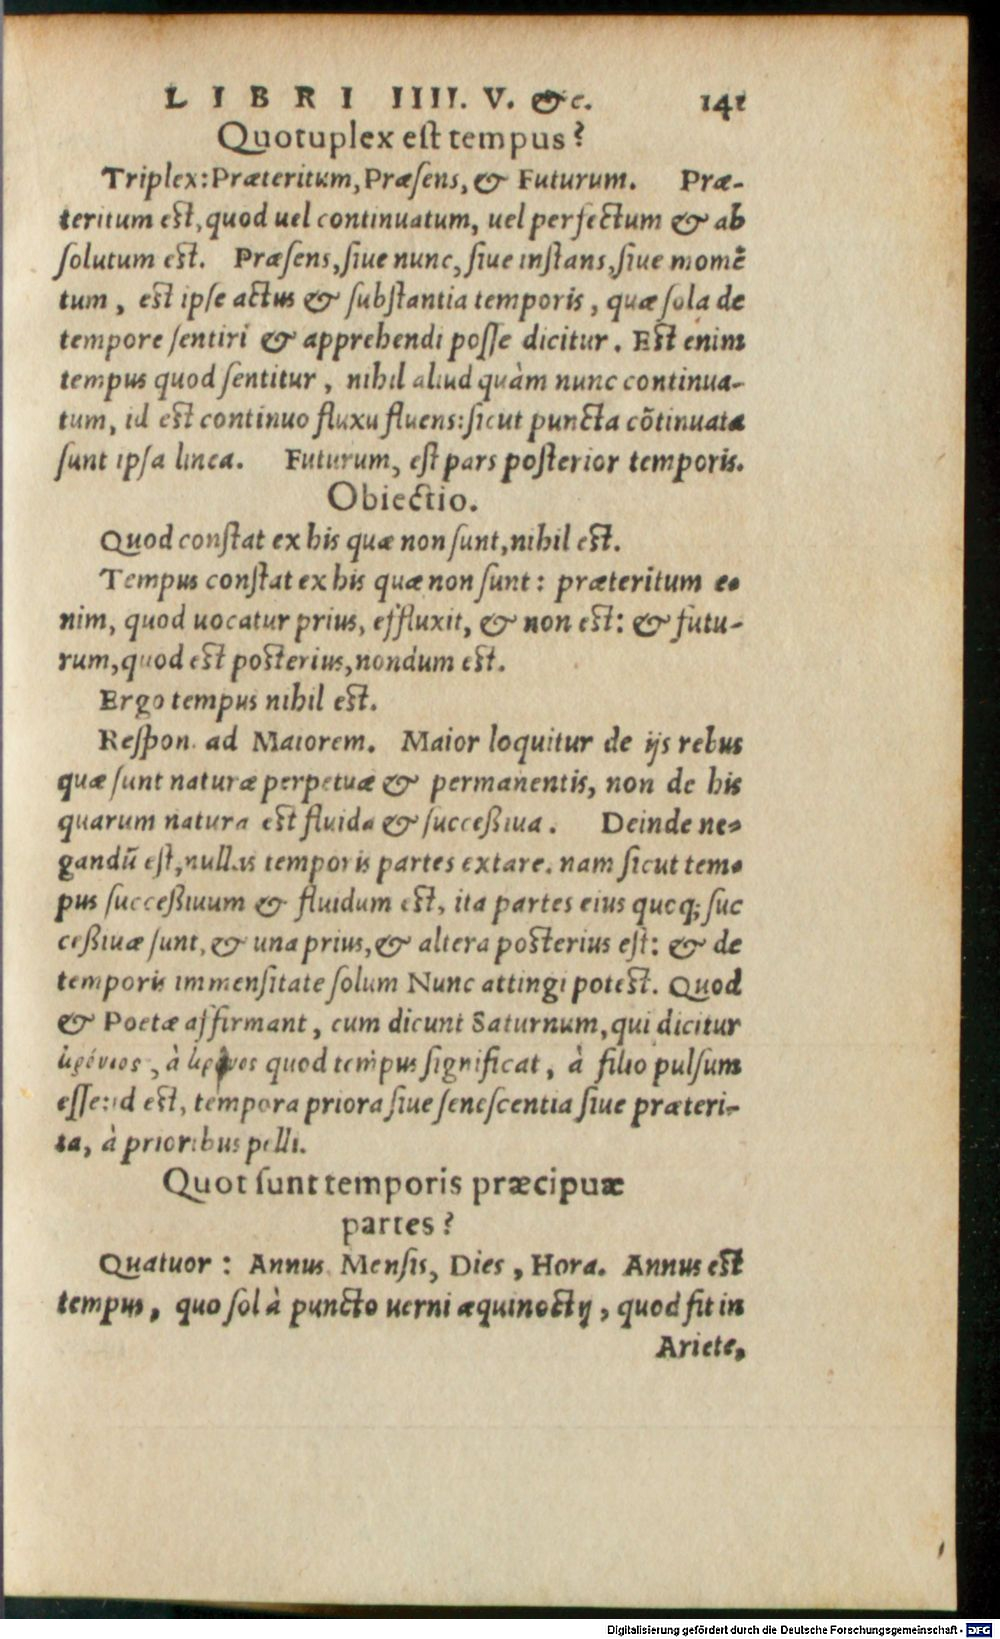 LIBRI IIII. V. &c. 141
Quotuplex est tempus?
Triplex: Præteritum, Præsens, & Futurum. Præ-
teritum est, quod uel continuatum, uel perfectum & ab
solutum est. Præsens, siue nunc, siue instans, siue momẽ
tum, est ipse actus & substantia temporis, quæ sola de
tempore sentiri & apprehendi posse dicitur. Est enim
tempus quod sentitur, nihil aliud quàm nunc continua-
tum, id est continuo fluxu fluens: sicut puncta cõtinuata
sunt ipsa linea. Futurum, est pars posterior temporis.
Obiectio.
Quod constat ex his quæ non sunt, nihil est.
Tempus constat ex his quæ non sunt: præteritum e-
nim, quod uocatur prius, effluxit, & non est: & futu-
rum, quod est posterius, nondum est.
Ergo tempus nihil est.
Respon. ad Maiorem. Maior loquitur de ijs rebus
quæ sunt naturæ perpetuæ & permanentis, non de his
quarum natura est fluida & successiua. Deinde ne-
gandũ est, nullas temporis partes extare. nam sicut tem-
pus successiuum & fluidum est, ita partes eius quoq; suc
cessiuæ sunt, & una prius, & altera posterius est: & de
temporis immensitate solum Nunc attingi potest. Quod
& Poetæ affirmant, cum dicunt Saturnum, qui dicitur
κρόνιος, à κρόνος quod tempus significat, à filio pulsum
esse: id est, tempora priora siue senescentia siue præteri-
ta, à prioribus pelli.
Quot sunt temporis præcipuæ
partes?
Quatuor: Annus Mensis, Dies, Hora. Annus est
tempus, quo sol à puncto uerni æquinoctij, quod fit in
Ariete,
Digitalisierung gefördert durch die Deutsche Forschungsgemeinschaft - DFG